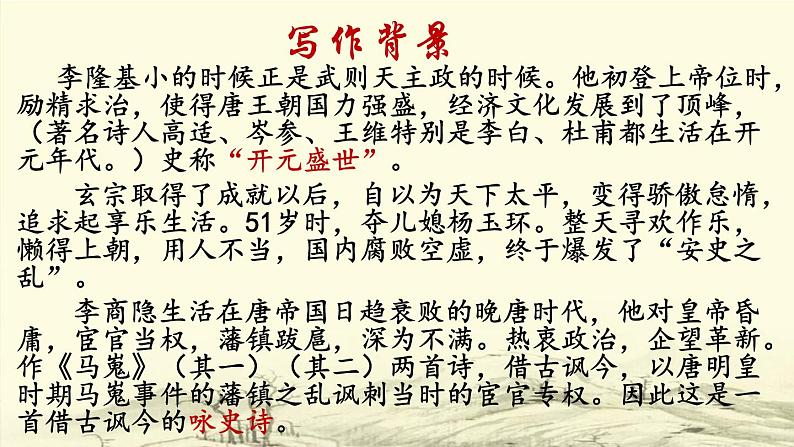 写作背景
李隆基小的时候正是武则天主政的时候。他初登上帝位时，
励精求治，使得唐王朝国力强盛，经济文化发展到了顶峰，
（著名诗人高适、岑参、王维特别是李白、杜甫都生活在开
元年代。）史称“开元盛世”。
玄宗取得了成就以后，自以为天下太平，变得骄傲怠惰，
追求起享乐生活。51岁时，夺儿媳杨玉环。整天寻欢作乐，
懒得上朝，用人不当，国内腐败空虚，终于爆发了“安史之
乱”。
李商隐生活在唐帝国日趋衰败的晚唐时代，他对皇帝昏
庸，宦官当权，藩镇跋扈，深为不满。热衷政治，企望革新。
作《马嵬》（其一）（其二）两首诗，借古讽今，以唐明皇
时期马嵬事件的藩镇之乱讽刺当时的宦官专权。因此这是一
首借古讽今的咏史诗。